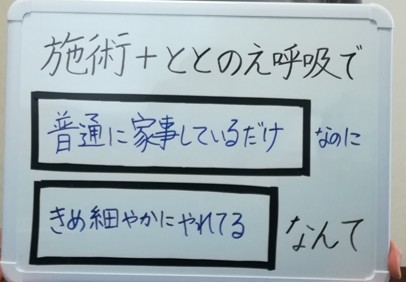 施術+ととのえ呼吸で
普通に家事しているだけ なのに
きめ細やかにやれてる なんて